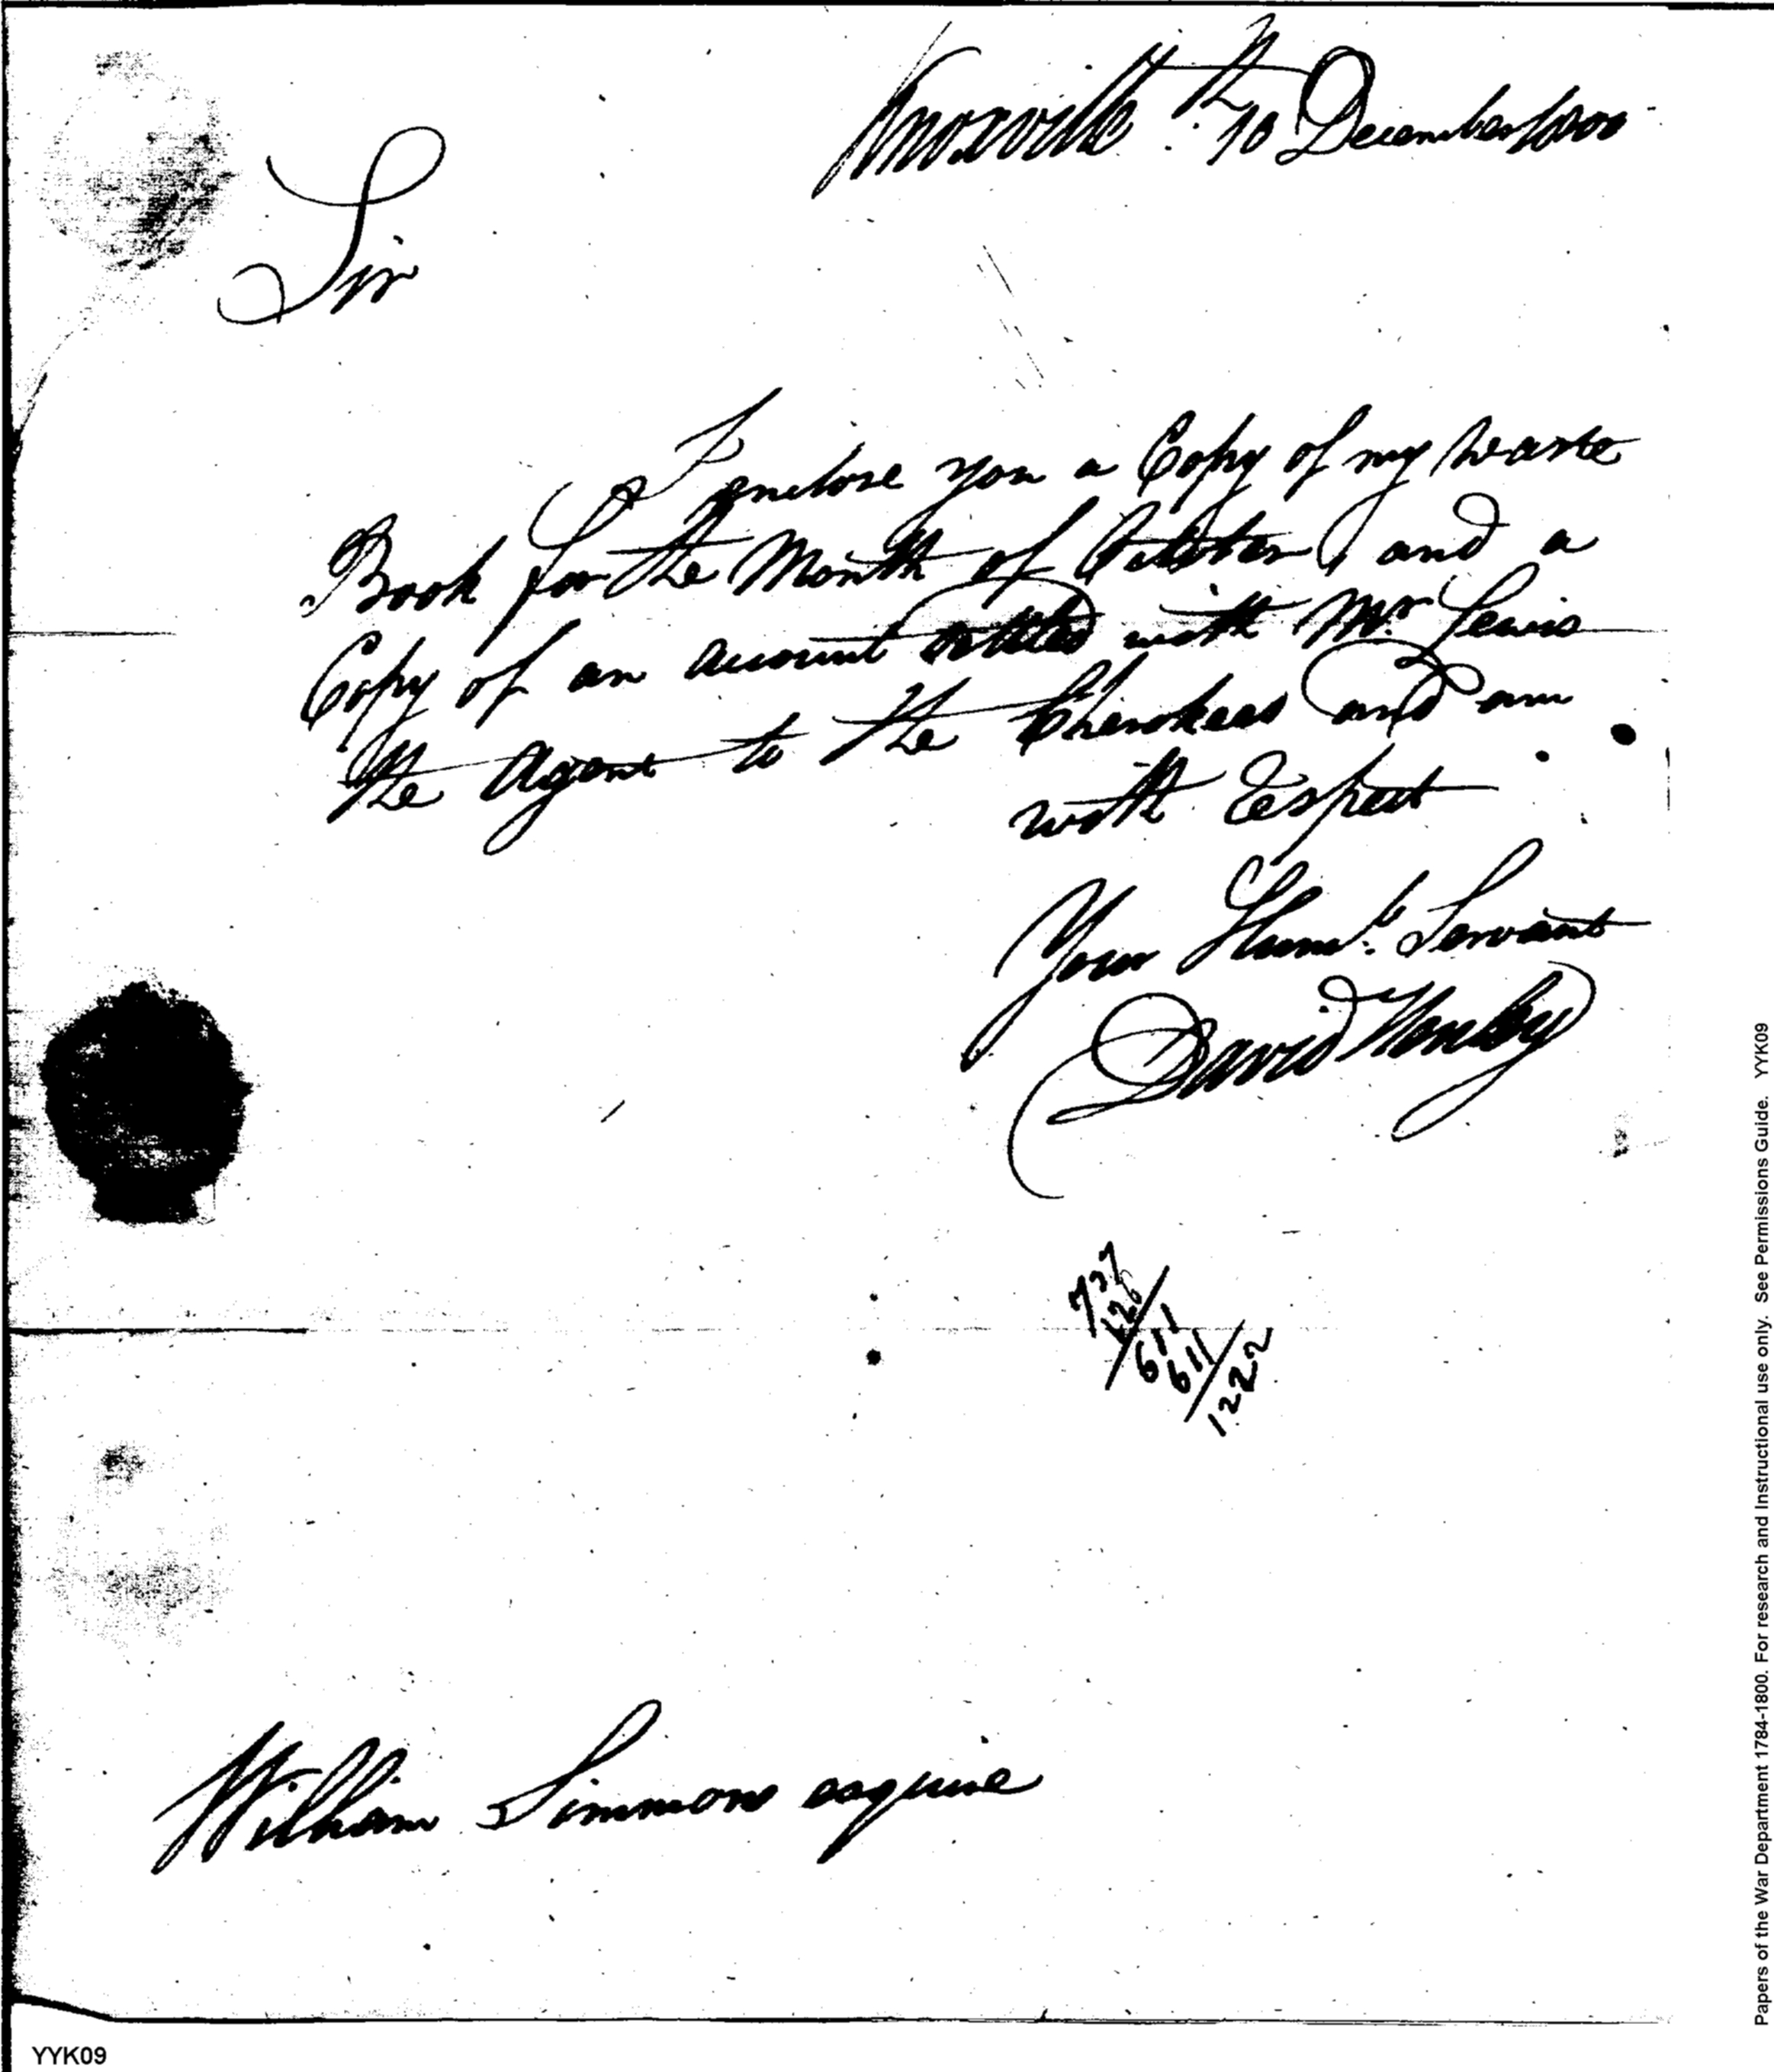 Knoxville 10th December 1800
Sir
I enclose you a Copy of my Waste
Book for the Month of October and a
Copy of an account settled with Mr. Lewis
the Agent to the Cherokees and am
with Espect
Your Humb. Servant
David Henley
737
126
611
611
1222
William Simmons esquire
YYK09
Papers of the War Department 1784-1800. For research and Instructional use only. See Permissions Guide. YYK09